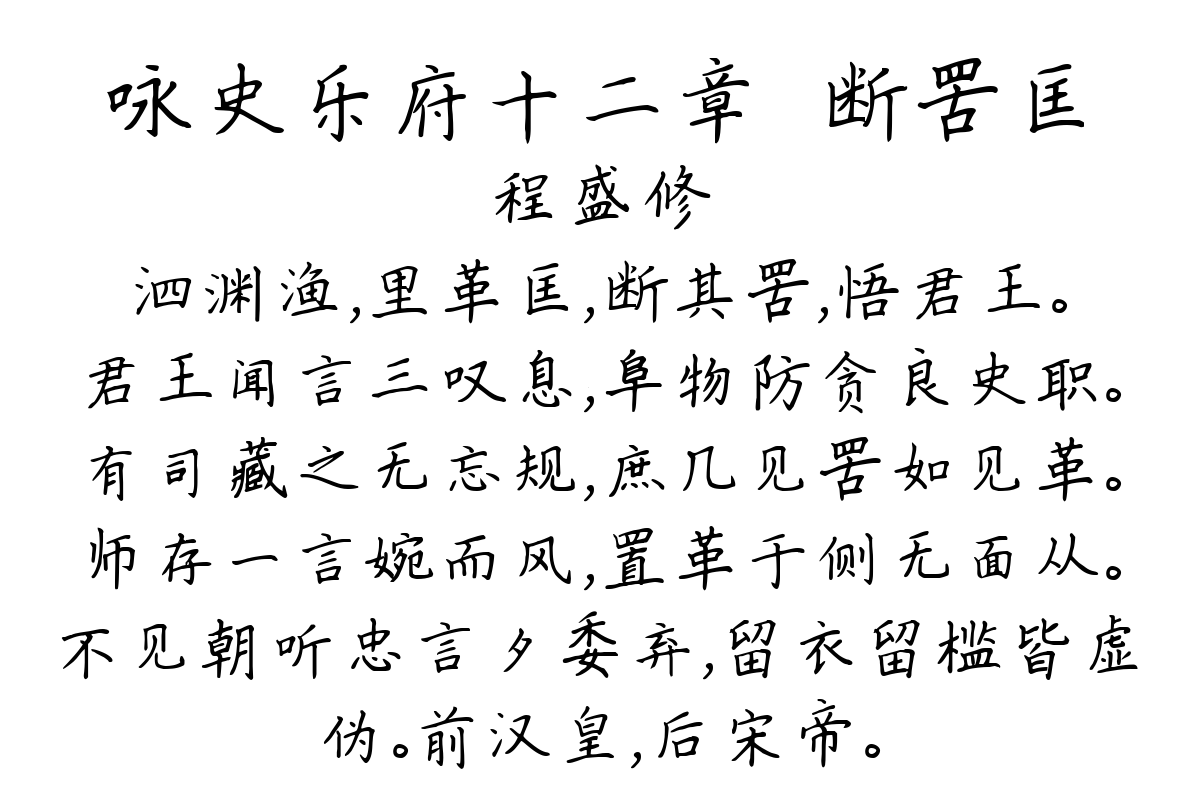 咏史乐府十二章 断罟匡
程盛修
泗渊渔,里革匡,断其罟,悟君王。
君王闻言三叹息,阜物防贪良史职。
有司藏之无忘规,庶几见罟如见革。
师存一言婉而风,置革于侧无面从。
不见朝听忠言夕委弃,留衣留槛皆虚
伪。前汉皇,后宋帝。